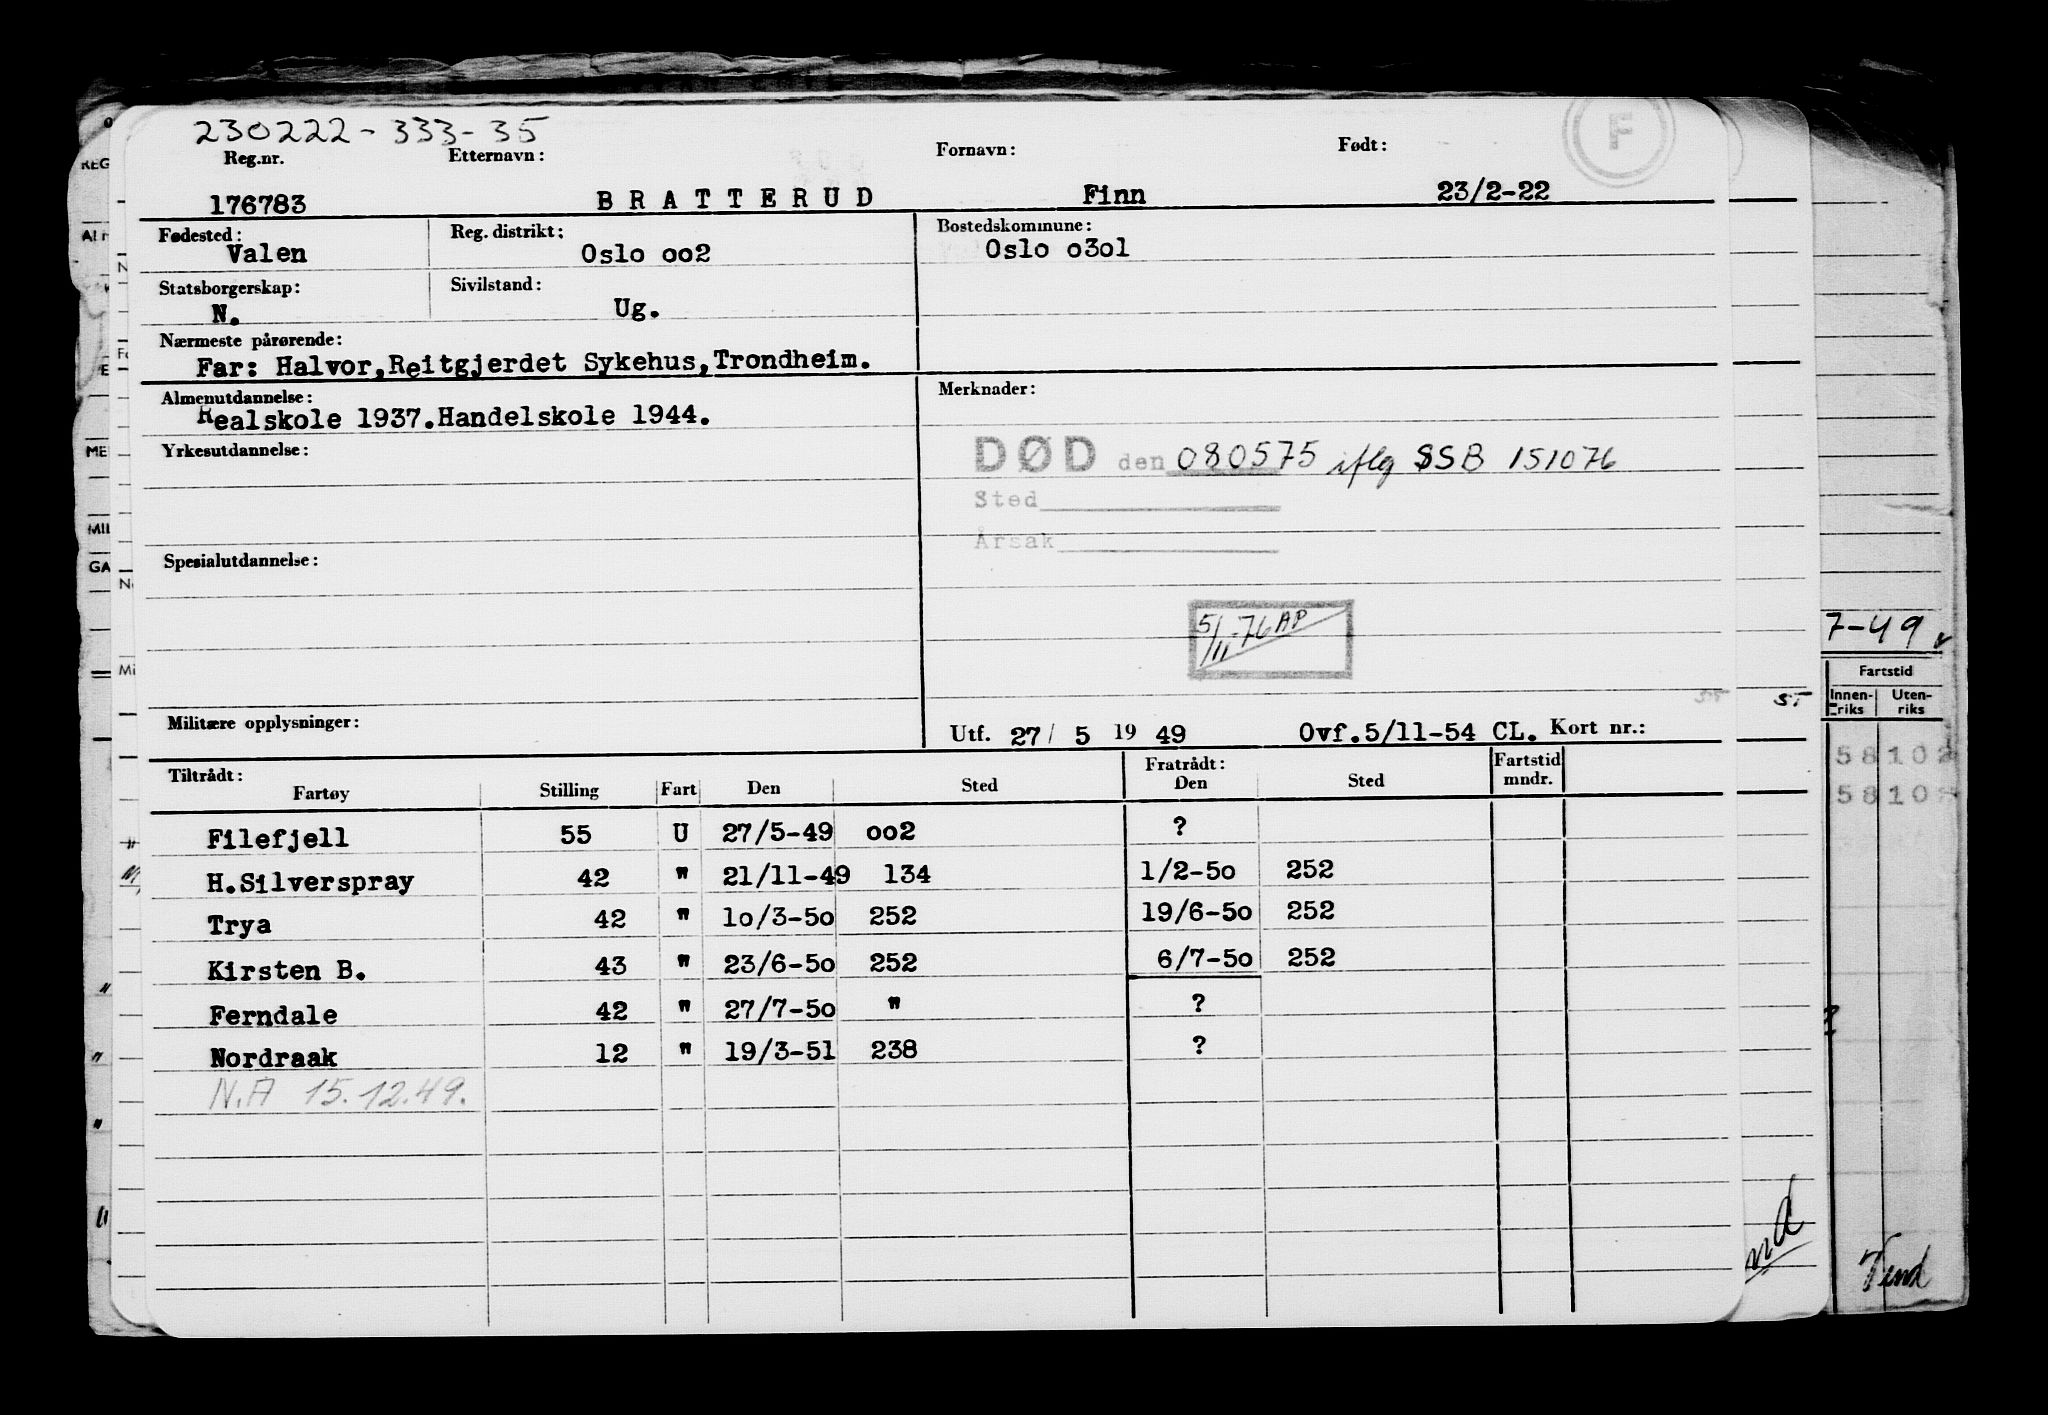 230222-333-35
F
Reg.nr. Etternavn: Fornavn: Født:
176783 BRATTERUD Finn 23/2-22
Fødested: Reg. distrikt: Bostedskommune:
Valen Oslo oo2 Oslo o3o1
Statsborgerskap: Sivilstand:
N. Ug.
Nærmeste pårørende:
Far: Halvor,Reitgjerdet Sykehus,Trondheim.
Almenutdannelse: Merknader:
Realskole 1937.Handelskole 1944.
Yrkesutdannelse:
DØD den 080575 iflg SSB 151076
Sted
Årsak
Spesialutdannelse:
5/11-76 AP
Militære opplysninger: Utf. 27/ 5 19 49 Ovf.5/11-54 CL. Kort nr.:
Tiltrådt: Fratrådt: Fartstid mndr.
Fartøy Stilling Fart Den Sted Den Sted
Filefjell 55 U 27/5-49 oo2 ?
H.Silverspray 42 " 21/11-49 134 1/2-5o 252
Trya 42 " 1o/3-5o 252 19/6-5o 252
Kirsten B. 43 " 23/6-5o 252 6/7-5o 252
Ferndale 42 " 27/7-5o " ?
Nordraak 12 " 19/3-51 238 ?
N.A 15.12.49.
REG
ME
MIL
GA
Mi
7-49
Fartstid
Innen-riks Uten-riks
58102
5810